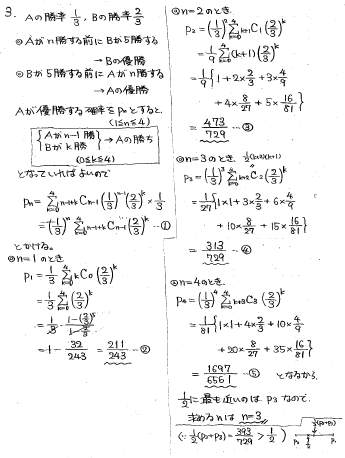 3. Aの勝率 1/3, Bの勝率 2/3
◎Aがn勝する前にBが5勝する
→Bの優勝
◎Bが5勝する前にAがn勝する
→Aの優勝
Aが優勝する確率をPnとすると、
(1≤n≤4)
{Aがn-1勝
Bがk勝} →Aの勝ち
(0≤k≤4)
となっていればよいので
Pn = Σ[k=0→4] n-1+kCn-1 (1/3)^(n-1) (2/3)^k × 1/3
= (1/3)^n Σ[k=0→4] n-1+kCn-1 (2/3)^k …①
とかける。
◎n=1のとき
P1 = 1/3 Σ[k=0→4] kC0 (2/3)^k
= 1/3 Σ[k=0→4] (2/3)^k
= 1/3 · (1-(2/3)^5)/(1-2/3)
= 1 - 32/243 = 211/243 …②
◎n=2のとき
P2 = (1/3)^2 Σ[k=0→4] k+1C1 (2/3)^k
= 1/9 Σ[k=0→4] (k+1)(2/3)^k
= 1/9 {1+2×2/3+3×4/9
+4×8/27+5×16/81}
= 473/729 …③
◎n=3のとき 1/2(k+2)(k+1)
P3 = (1/3)^3 Σ[k=0→4] k+2C2 (2/3)^k
= 1/27 {1×1+3×2/3+6×4/9
+10×8/27+15×16/81}
= 313/729 …④
◎n=4のとき
P4 = (1/3)^4 Σ[k=0→4] k+3C3 (2/3)^k
= 1/81 {1×1+4×2/3+10×4/9
+20×8/27+35×16/81}
= 1697/6561 …⑤ となるから、
1/2に最も近いのは P3 なので、
求めるnは n=3
(∵ 1/2(P2+P3) = 393/729 > 1/2)
1/2(P2+P3)
P3 1/2 P2